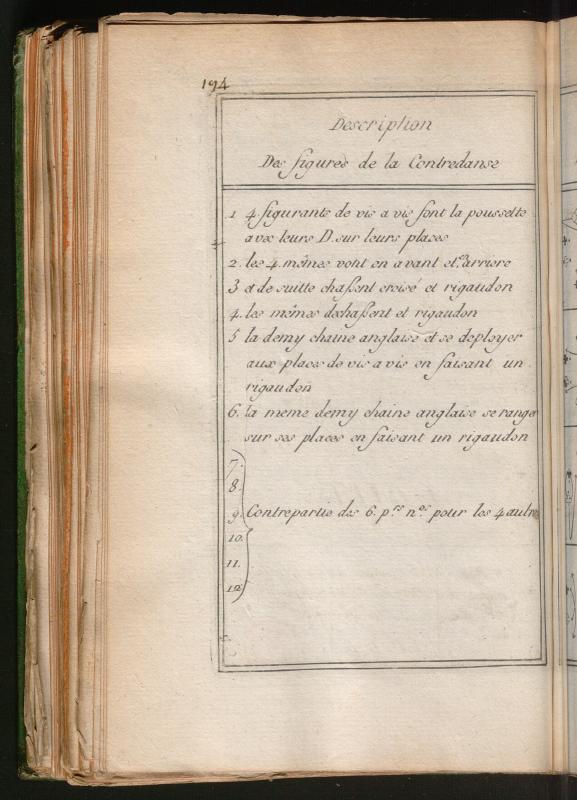 194
Description
Des figures de la Contredanse
1 4 figurants de vis a vis font la poussette
avec leurs D. sur leurs places
2. les 4. mêmes vont en avant et en arriere
3 et de suitte chassent croisé et rigaudon
4. les mêmes dechassent et rigaudon
5 la demy chaine anglaise et se deployer
aux places de vis a vis en faisant un
rigaudon
6. la meme demy chaine anglaise se ranger
sur ses places en faisant un rigaudon
7.
8.
9. Contrepartie des 6. p.rs n.os pour les 4 autres
10.
11.
12.